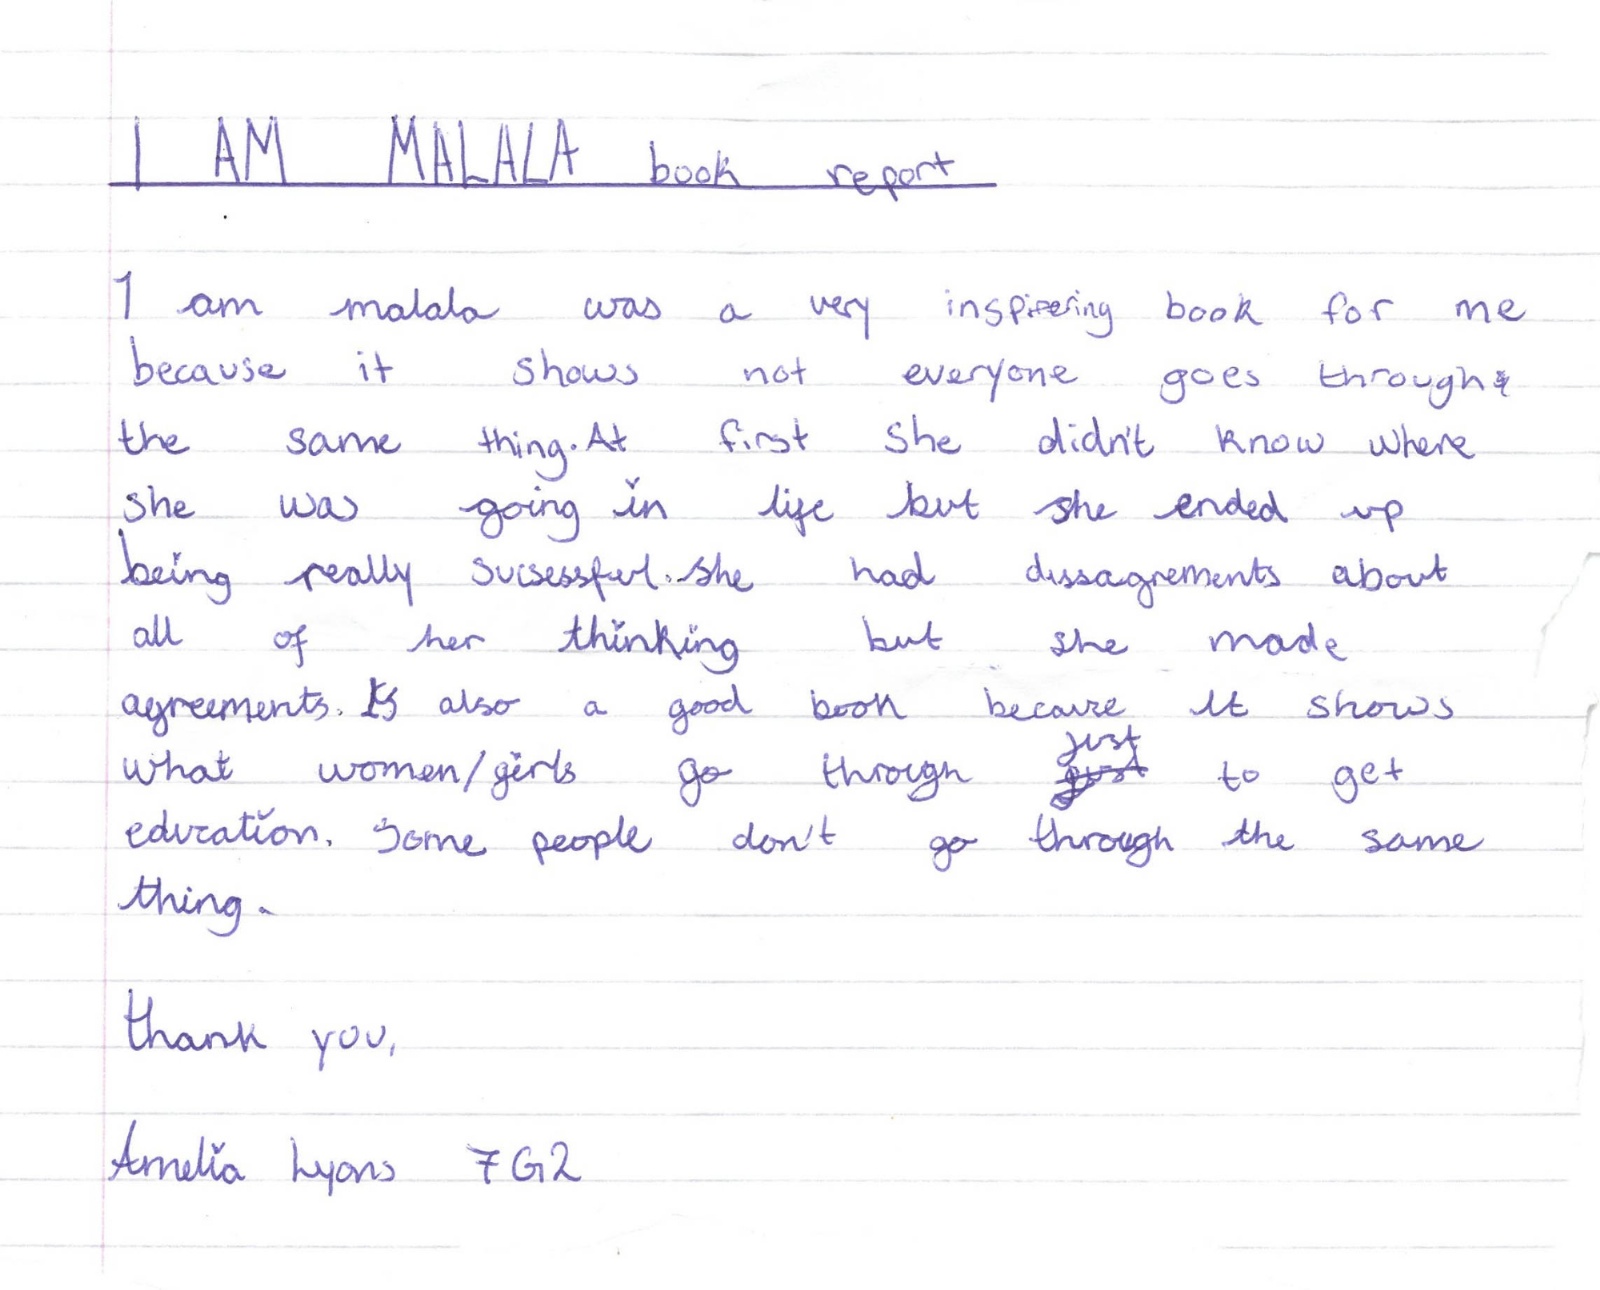 I AM MALALA book report
I am malala was a very inspireing book for me
because it shows not everyone goes through
the same thing. At first she didn't know where
she was going in life but she ended up
being really sucsessful. she had dissagrements about
all of her thinking but she made
agreements. Its also a good book because it shows
what women/girls go through just to get
education. Some people don't go through the same
thing.
thank you,
Amelia Lyons 7G2